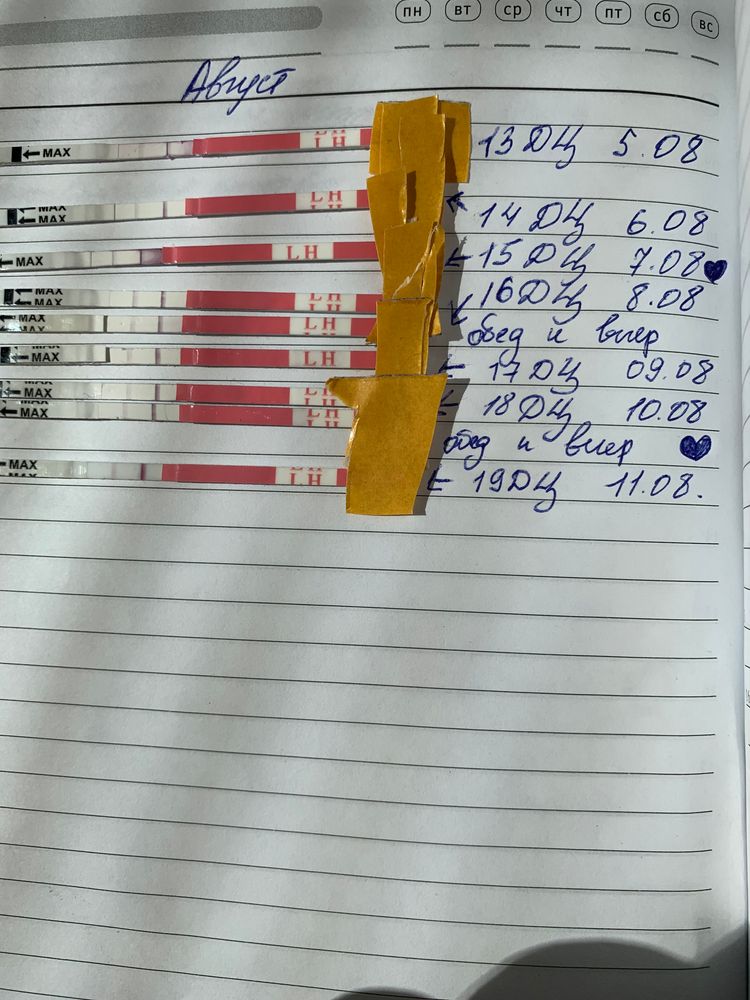 пн вт ср чт пт сб вс
Август
MAX LH LH 13 ДЦ 5.08
MAX MAX LH LH 14 ДЦ 6.08
MAX LH 15 ДЦ 7.08
MAX MAX LH LH 16 ДЦ 8.08
MAX MAX LH обед и вчер
MAX MAX LH 17 ДЦ 09.08
MAX LH
MAX LH 18 ДЦ 10.08
обед и вчер
MAX MAX LH LH 19 ДЦ 11.08.